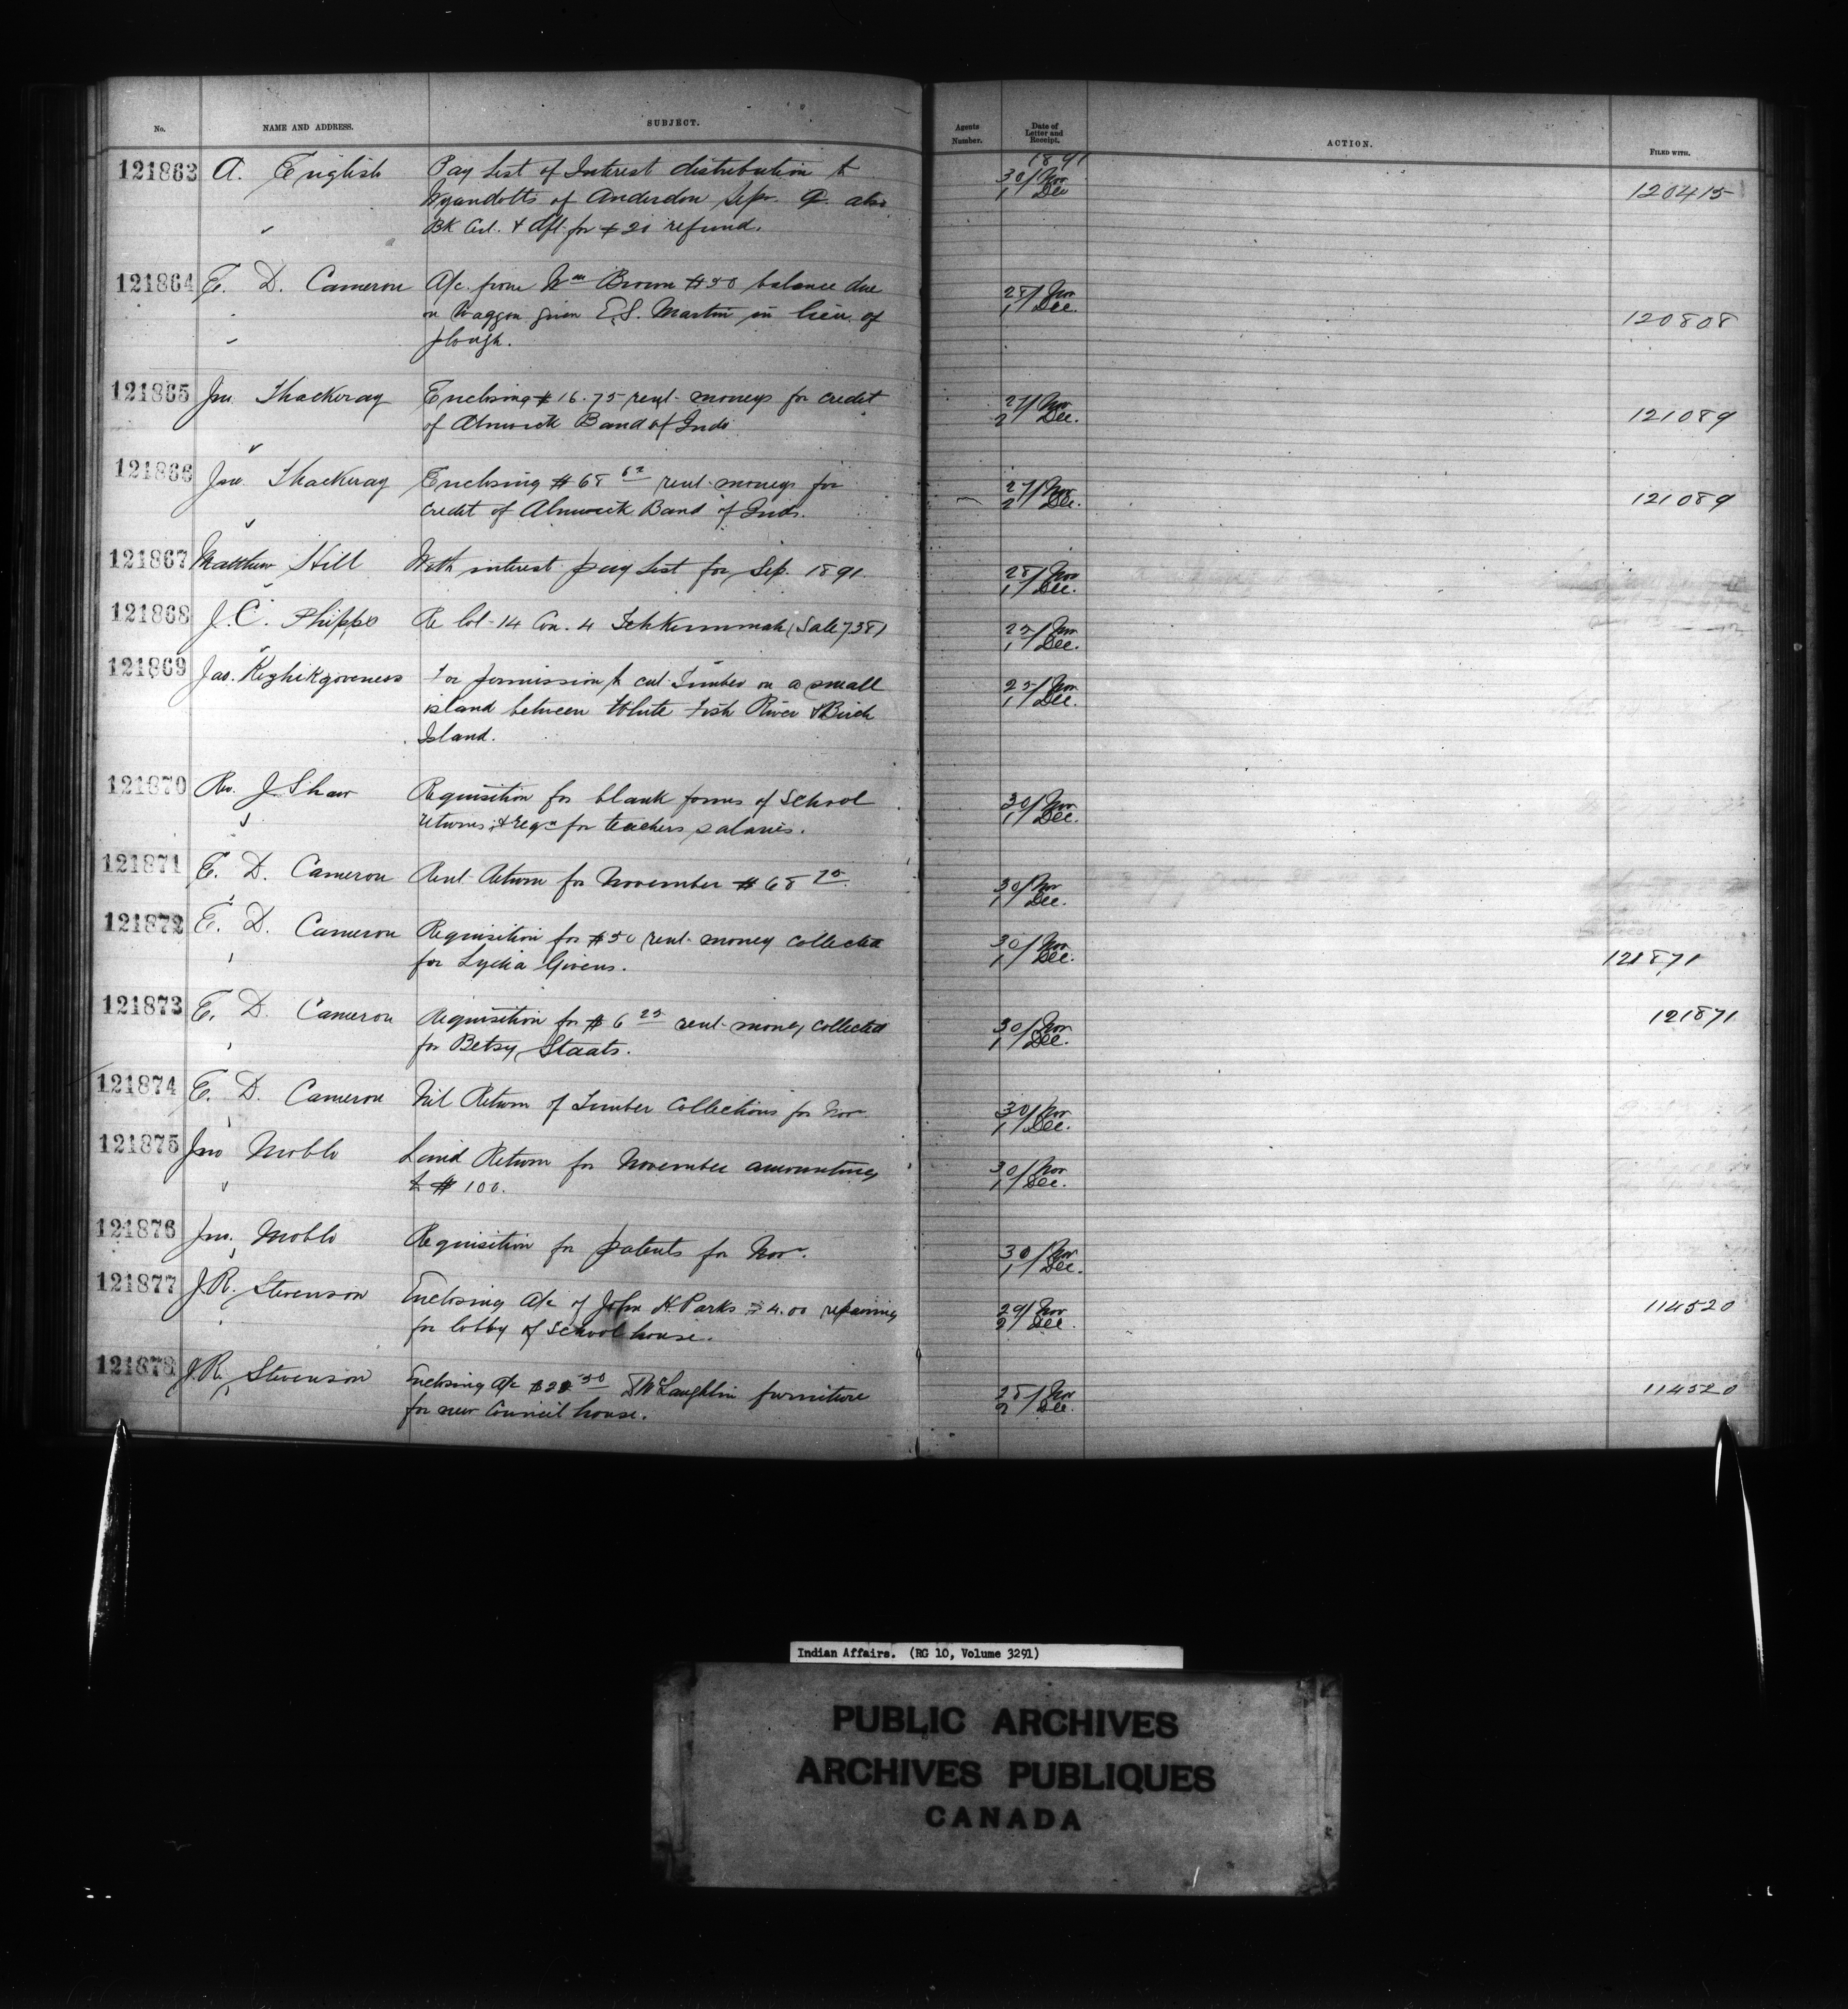 No. NAME AND ADDRESS. SUBJECT. Agents Number. Date of Letter and Receipt. ACTION. FILED WITH.
1891
121863 A. English Pay List of Interest distribution to 30/Nov 1/Dec 120415
Wyandotts of Anderdon Sep. Q. also
BK Cert. & Aft for $20 refund.
121864 E. D. Cameron A/c from Wm Brown $50 balance due 28/Nov 1/Dec. 120808
on Waggon given E.S. Martin in lieu of
plough.
121865 Jno. Thackeray Enclosing $16.75 rent moneys for credit 27/Nov 2/Dec. 121089
of Alnwick Band of Inds
121866 Jno. Thackeray Enclosing $68 rent moneys for 27/Nov 2/Dec. 121089
credit of Alnwick Band of Inds.
121867 Matthew Hill With interest pay list for Sep. 1891. 28/Nov 1/Dec.
121868 J.C. Phipps Re lot 14 Con. 4 (Sale 738) 25/Nov 1/Dec.
121869 Jas. For permission to cut Timber on a small 25/Nov 1/Dec.
island between White Fish River & Birch
Island.
121870 Rev. J Shaw Requisition for blank forms of School 30/Nov 1/Dec.
returns, & reqn for teachers salaries.
121871 E. D. Cameron Rent Return for November $68 75 30/Nov 1/Dec.
121872 E. D. Cameron Requisition for $50 rent money collected 30/Nov 1/Dec. 121871
for Lydia Givens.
121873 E. D. Cameron Requisition for $6 25 rent money collected 30/Nov 1/Dec. 121871
for Betsy Staats.
121874 E. D. Cameron Nil Return of Timber Collections for Nov 30/Nov 1/Dec.
121875 Jno Land Return for November amounting 30/Nov 1/Dec.
to $100.
121876 Jno. Requisition for patents for Nov. 30/Nov 1/Dec.
121877 J.R. Stevenson Enclosing A/c of John H. Parks $4.00 repairing 29/Nov 2/Dec 114520
for lobby of School house.
121878 J.R. Stevenson Enclosing A/c McLaughlin furniture 28/Nov 2/Dec. 114520
for new Council house.
Indian Affairs. (RG 10, Volume 3291)
PUBLIC ARCHIVES
ARCHIVES PUBLIQUES
CANADA